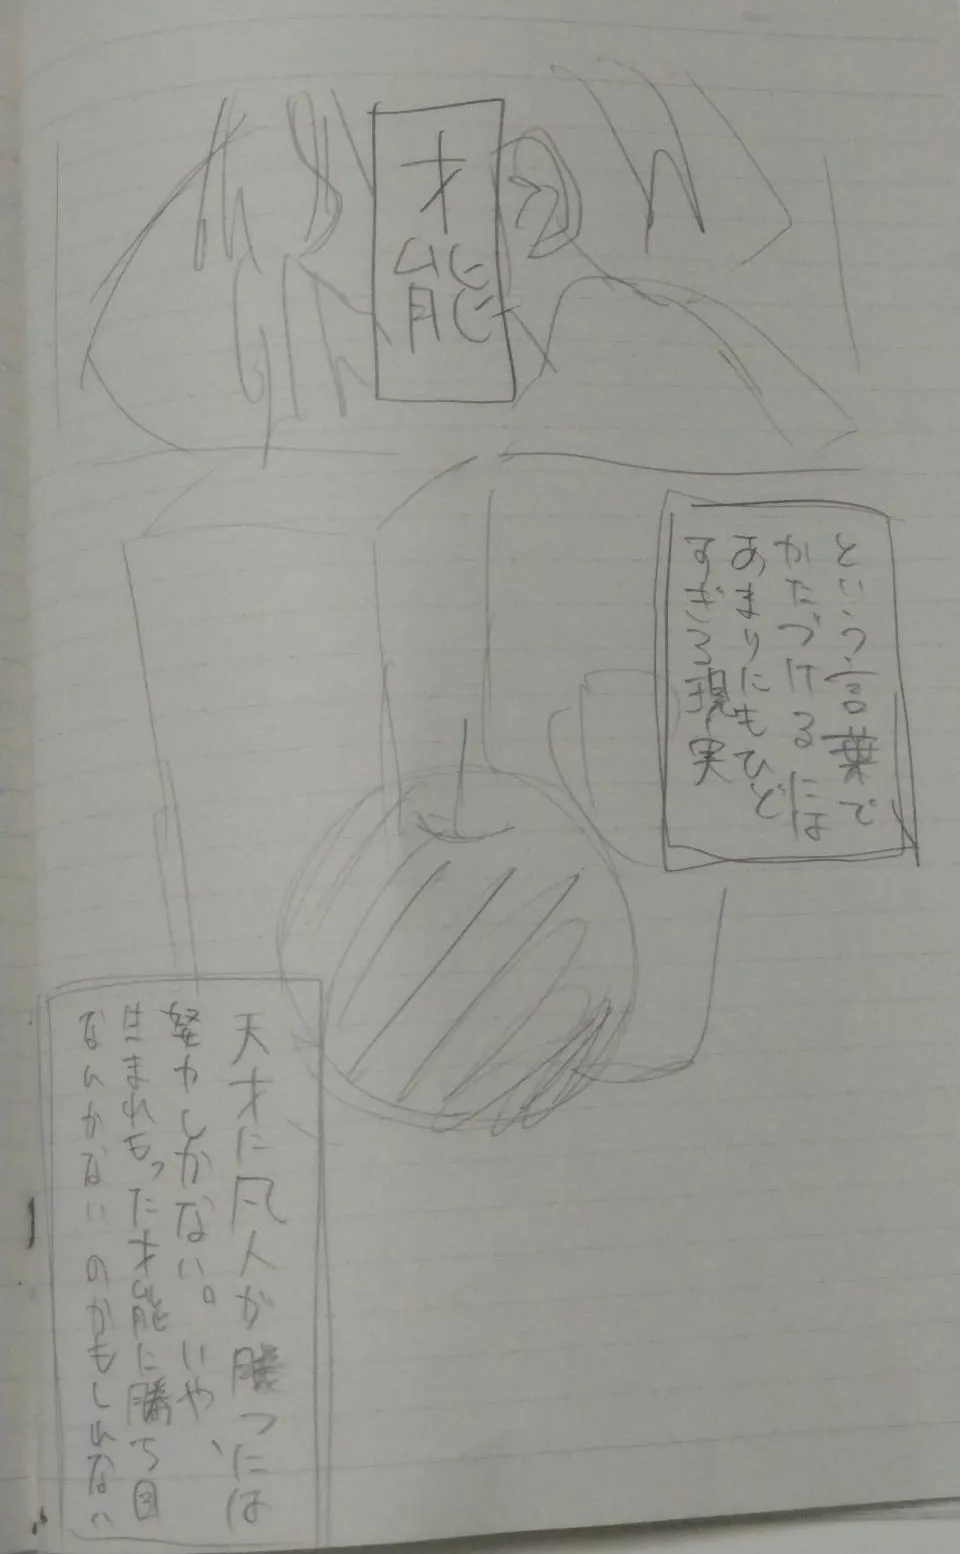 才能
という言葉で
かたづけるには
あまりにもひど
すぎる現実
天才に凡人が勝つには
努力しかない。いや、
はまれもった才能に勝ち目
なんかないのかもしれない